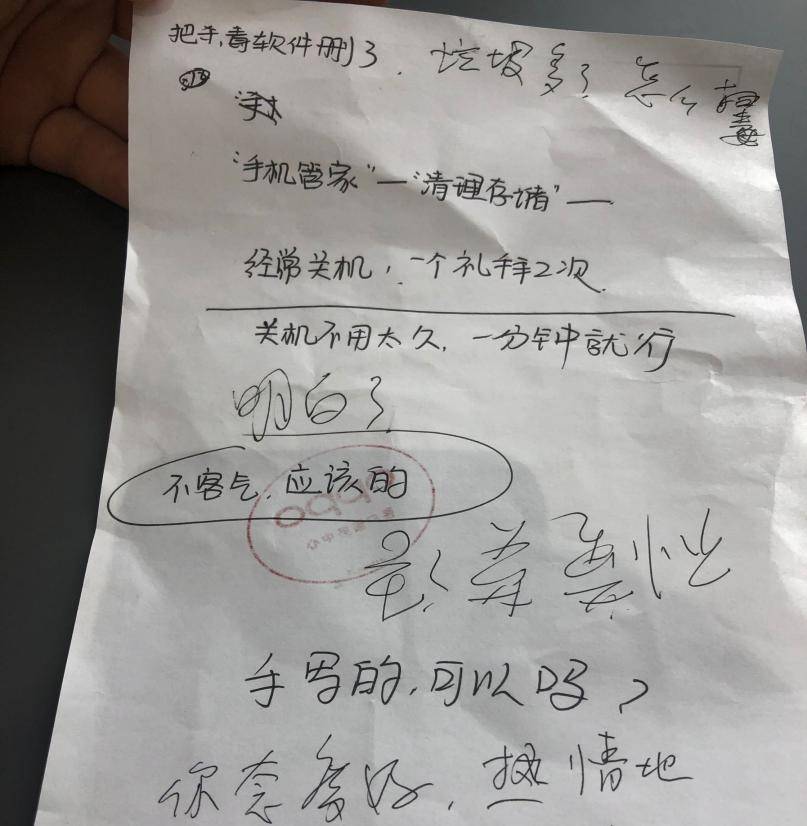 把杀毒软件删了. 垃圾多了怎么
"手机管家"—"清理存储"—
经常关机,一个礼拜2次.
关机不用太久,一分钟就行
明白了
不客气,应该的
oppo
手写的,可以吗?
你态度好,热情地